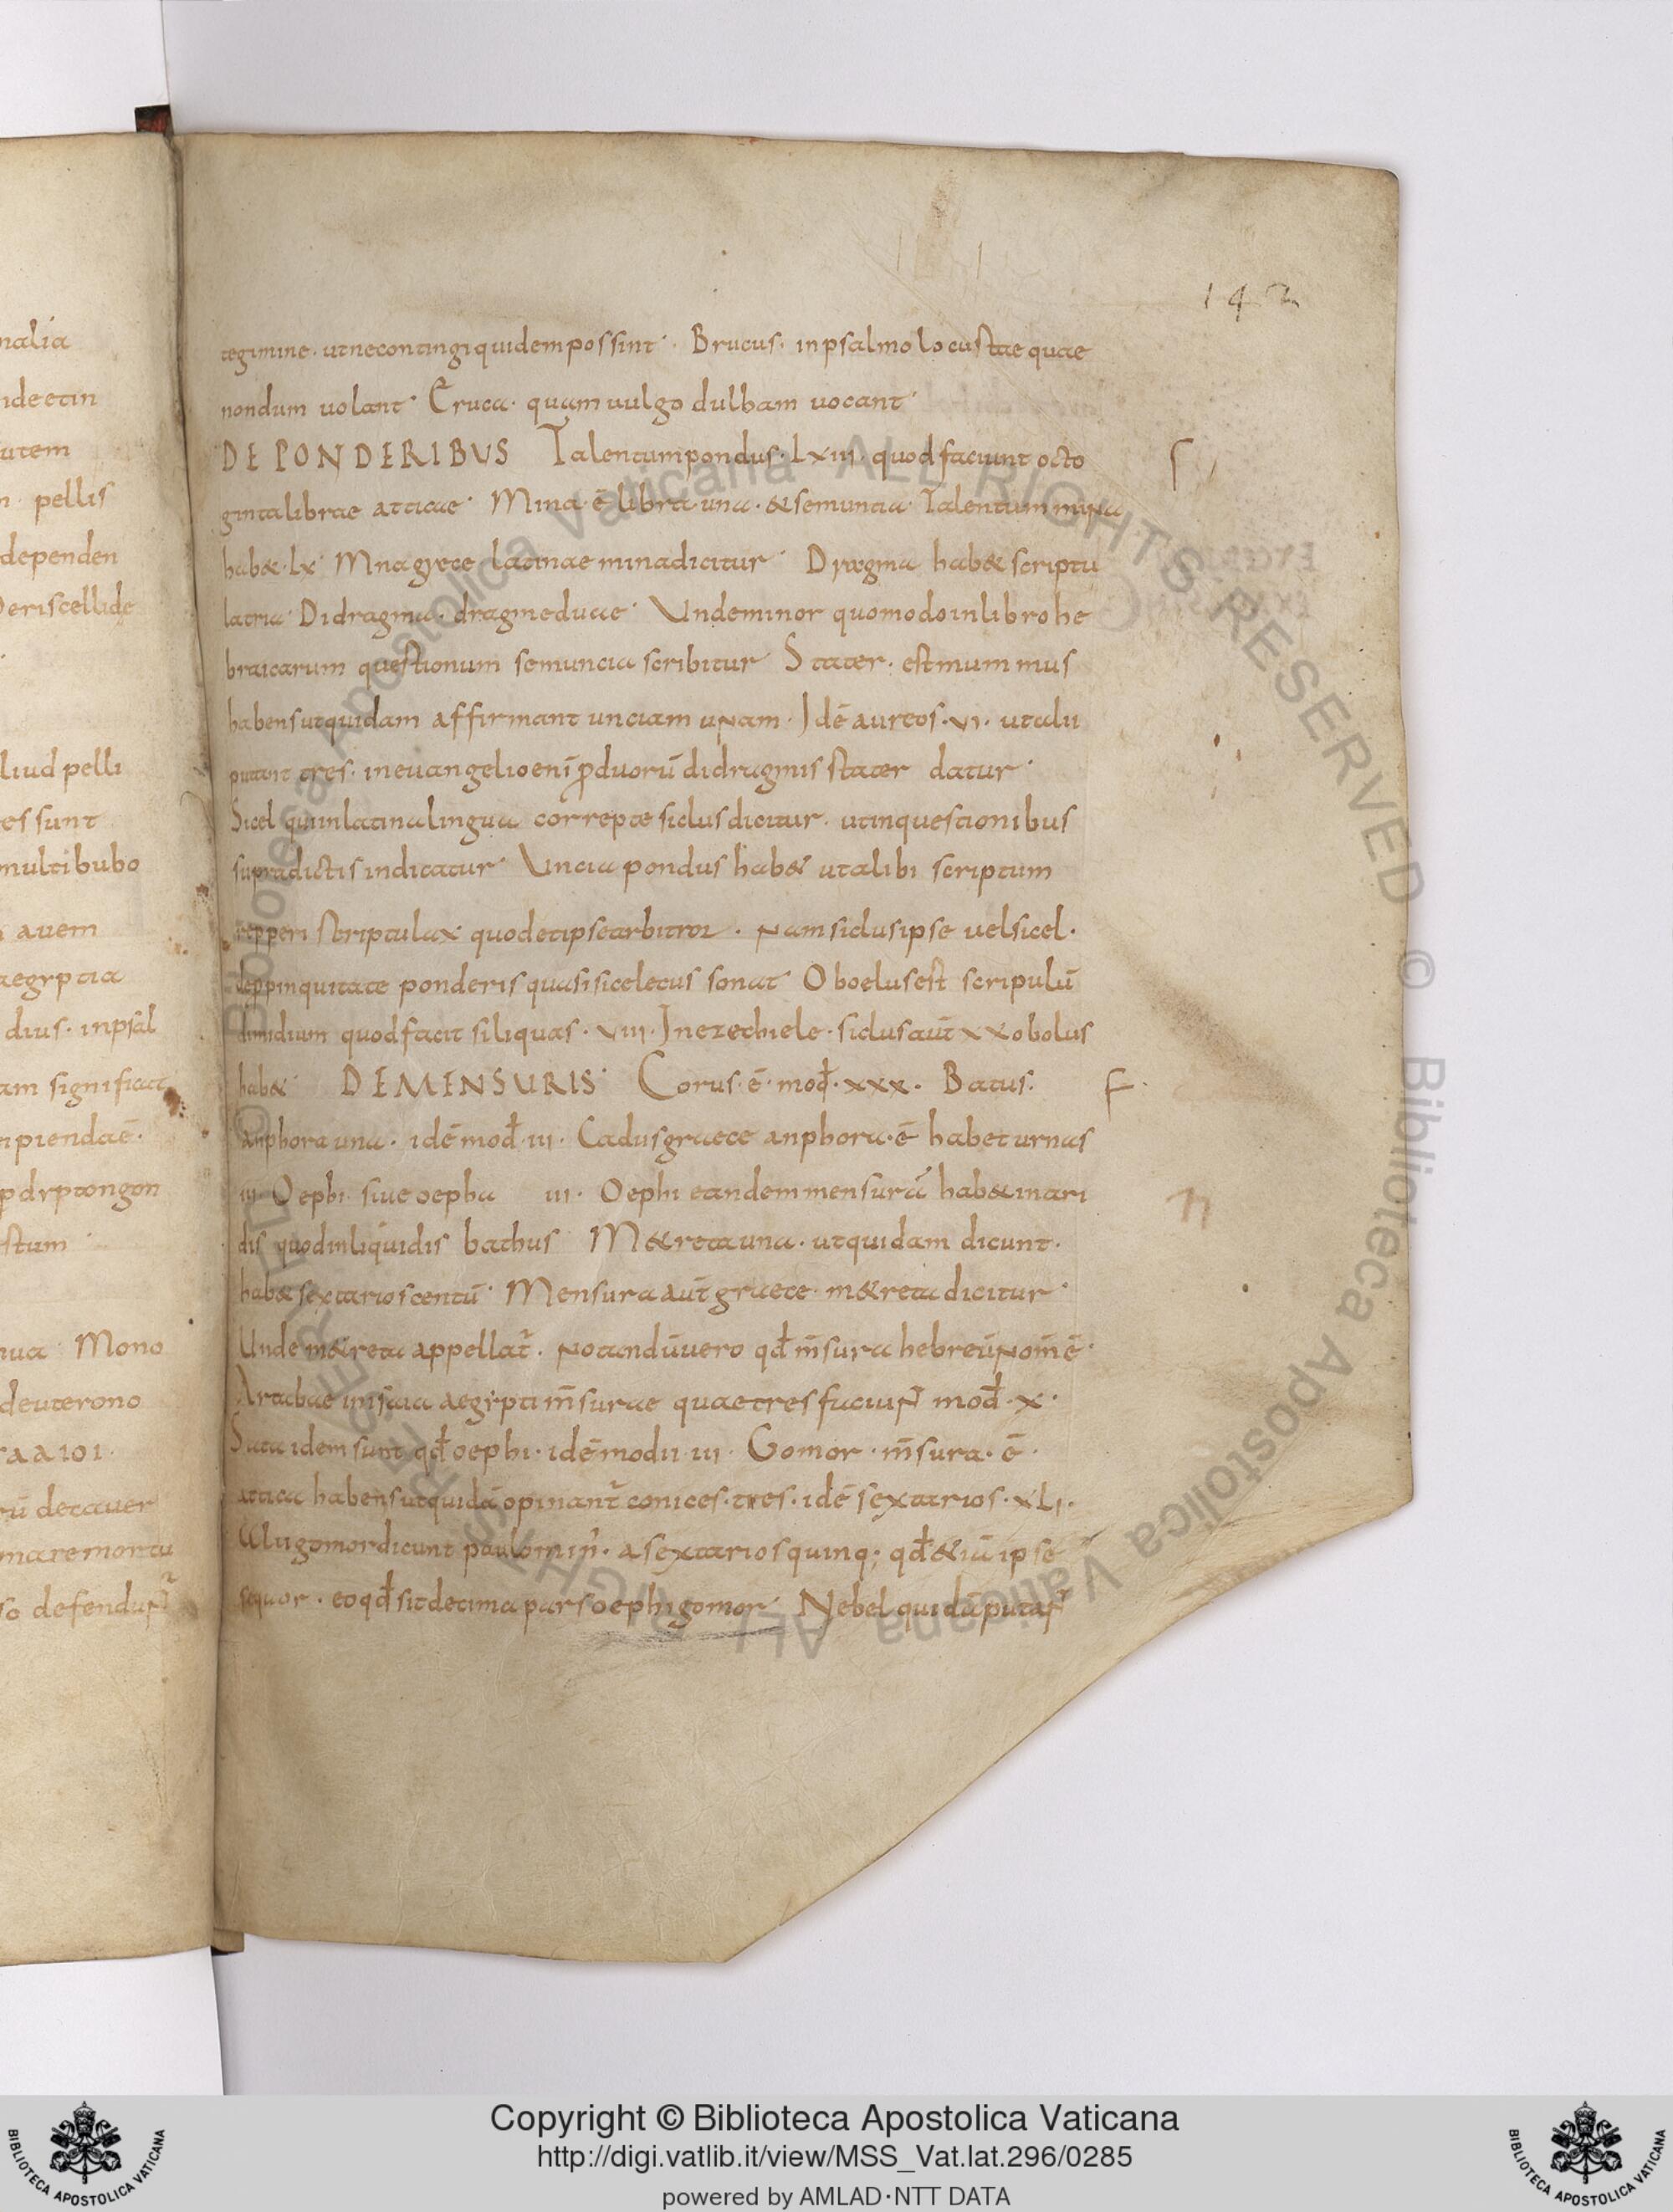 142
tegimine · ut nec contingi quidem possint · Brucus · in psalmo locustae quae
nondum uolant · Eruca · quam uulgo dulbam uocant ·
DE PONDERIBUS Talentum pondus · Lxiii · quod faciunt octo
ginta librae atticae · Mina · ē libra una · & semuncia · Talentum mina
hab& · Lx · Mna grece latinae mina dicitur · Dragma hab& scriptu
la tria · Didragma · dragme duae · Unde minor quomodo in libro he
braicarum questionum semuncia scribitur · Stater · est mummus
habens ut quidam affirmant unciam unam · Idē aureos · vi · ut alii
putant tres · in euangelio enī ꝓ duorū didragmis stater datur ·
Sicel qui in latina lingua correpte siclus dicitur · ut in questionibus
supradictis indicatur · Uncia pondus hab& ut alibi scriptum
repperi scriptula x quod et ipse arbitror · nam siclus ipse uel sicel ·
deppinquitate ponderis quasi siceletus sonat · Oboelus est scripulū
dimidium quod facit siliquas · viii · In ezechiele · siclus aut̄ xx obolus
hab& · DE MENSURIS · Corus · ē · mod̄ · xxx · Batus ·
anphora una · idē mod̄ · iii · Cadus graece anphora · ē habet urnas
iii · Oephi · siue oepha iii · Oephi eandem mensurā hab& in ari
dis quod in liquidis bathus · M&reta una · ut quidam dicunt ·
hab& sextarios centū · Mensura aut̄ graece m&reta dicitur ·
Unde m&reta appellat̄ · Notandū uero qđ m̄sura hebreū nom̄ ē ·
Artabae in isaia aegypti m̄surae quae tres faciunt mod̄ · x ·
Sata idem sunt qđ oephi · idē modii · iii · Gomor · m̄sura · ē ·
attica habens ut quidā opinant̄ conices · tres · idē sextarios · xLi ·
Alii gomor dicunt paulo min̄ · a sextarios quinq; qđ & iā ipse
sequor · eo qđ sit decima pars oephi gomor · Nebel quidā putant
nalia
ide et in
utem
pellis
dependen
eriscellide
liud pelli
es sunt
multi bubo
auem
aegyptia
dius · in psal
am significat
piendaē ·
stum
nua Mono
deuterono
rū detauer
mare mortu
so defendunt
© Biblioteca Apostolica Vaticana ALL RIGHTS RESERVED © Biblioteca Apostolica Vaticana ALL RIGHTS RESERVED
Copyright © Biblioteca Apostolica Vaticana
http://digi.vatlib.it/view/MSS_Vat.lat.296/0285
powered by AMLAD·NTT DATA
BIBLIOTECA APOSTOLICA VATICANA
BIBLIOTECA APOSTOLICA VATICANA